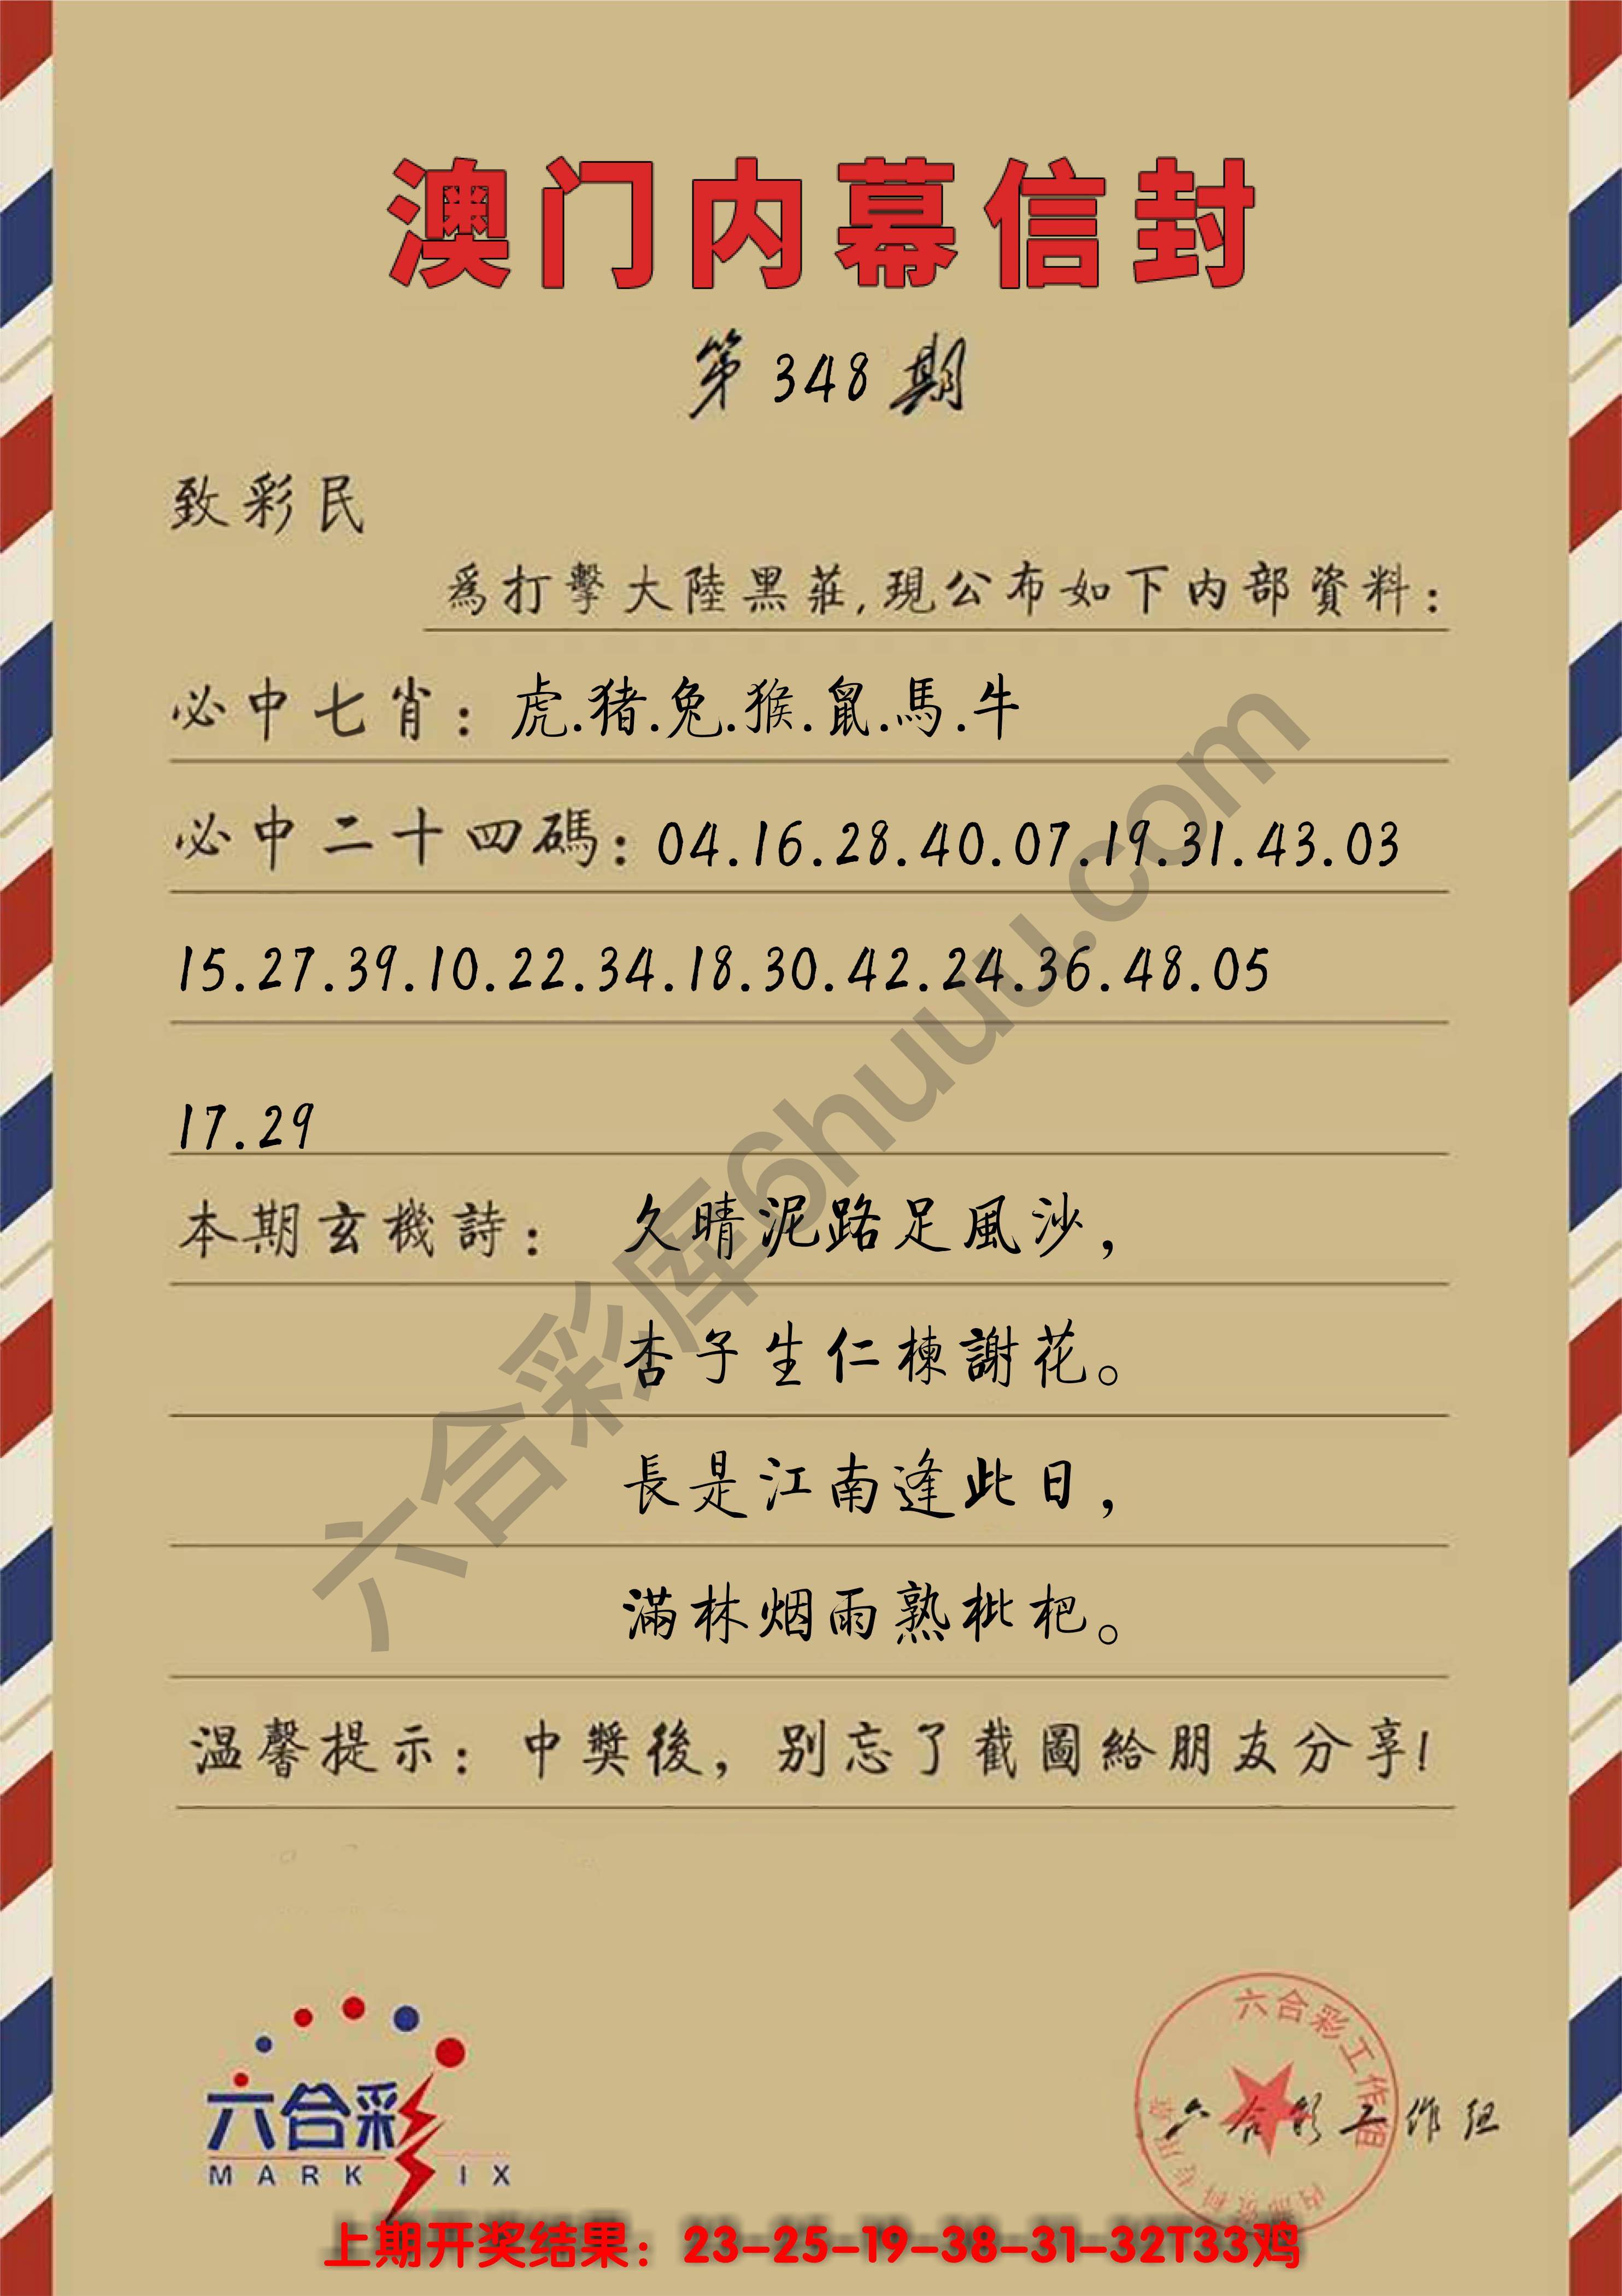 澳门内幕信封
第348期
致彩民
爲打擊大陸黑莊,現公布如下内部資料:
必中七肖: 虎.猪.兔.猴.鼠.馬.牛
必中二十四碼: 04.16.28.40.07.19.31.43.03
15.27.39.10.22.34.18.30.42.24.36.48.05
17.29
本期玄機詩: 久晴泥路足風沙，
杏子生仁楝謝花。
長是江南逢此日，
滿林烟雨熟枇杷。
温馨提示: 中獎後，别忘了截圖給朋友分享!
六合彩库6huuu.com
六合彩
MARK IX
六合彩工作组
六合彩工作组
上期开奖结果：23-25-19-38-31-32T33鸡